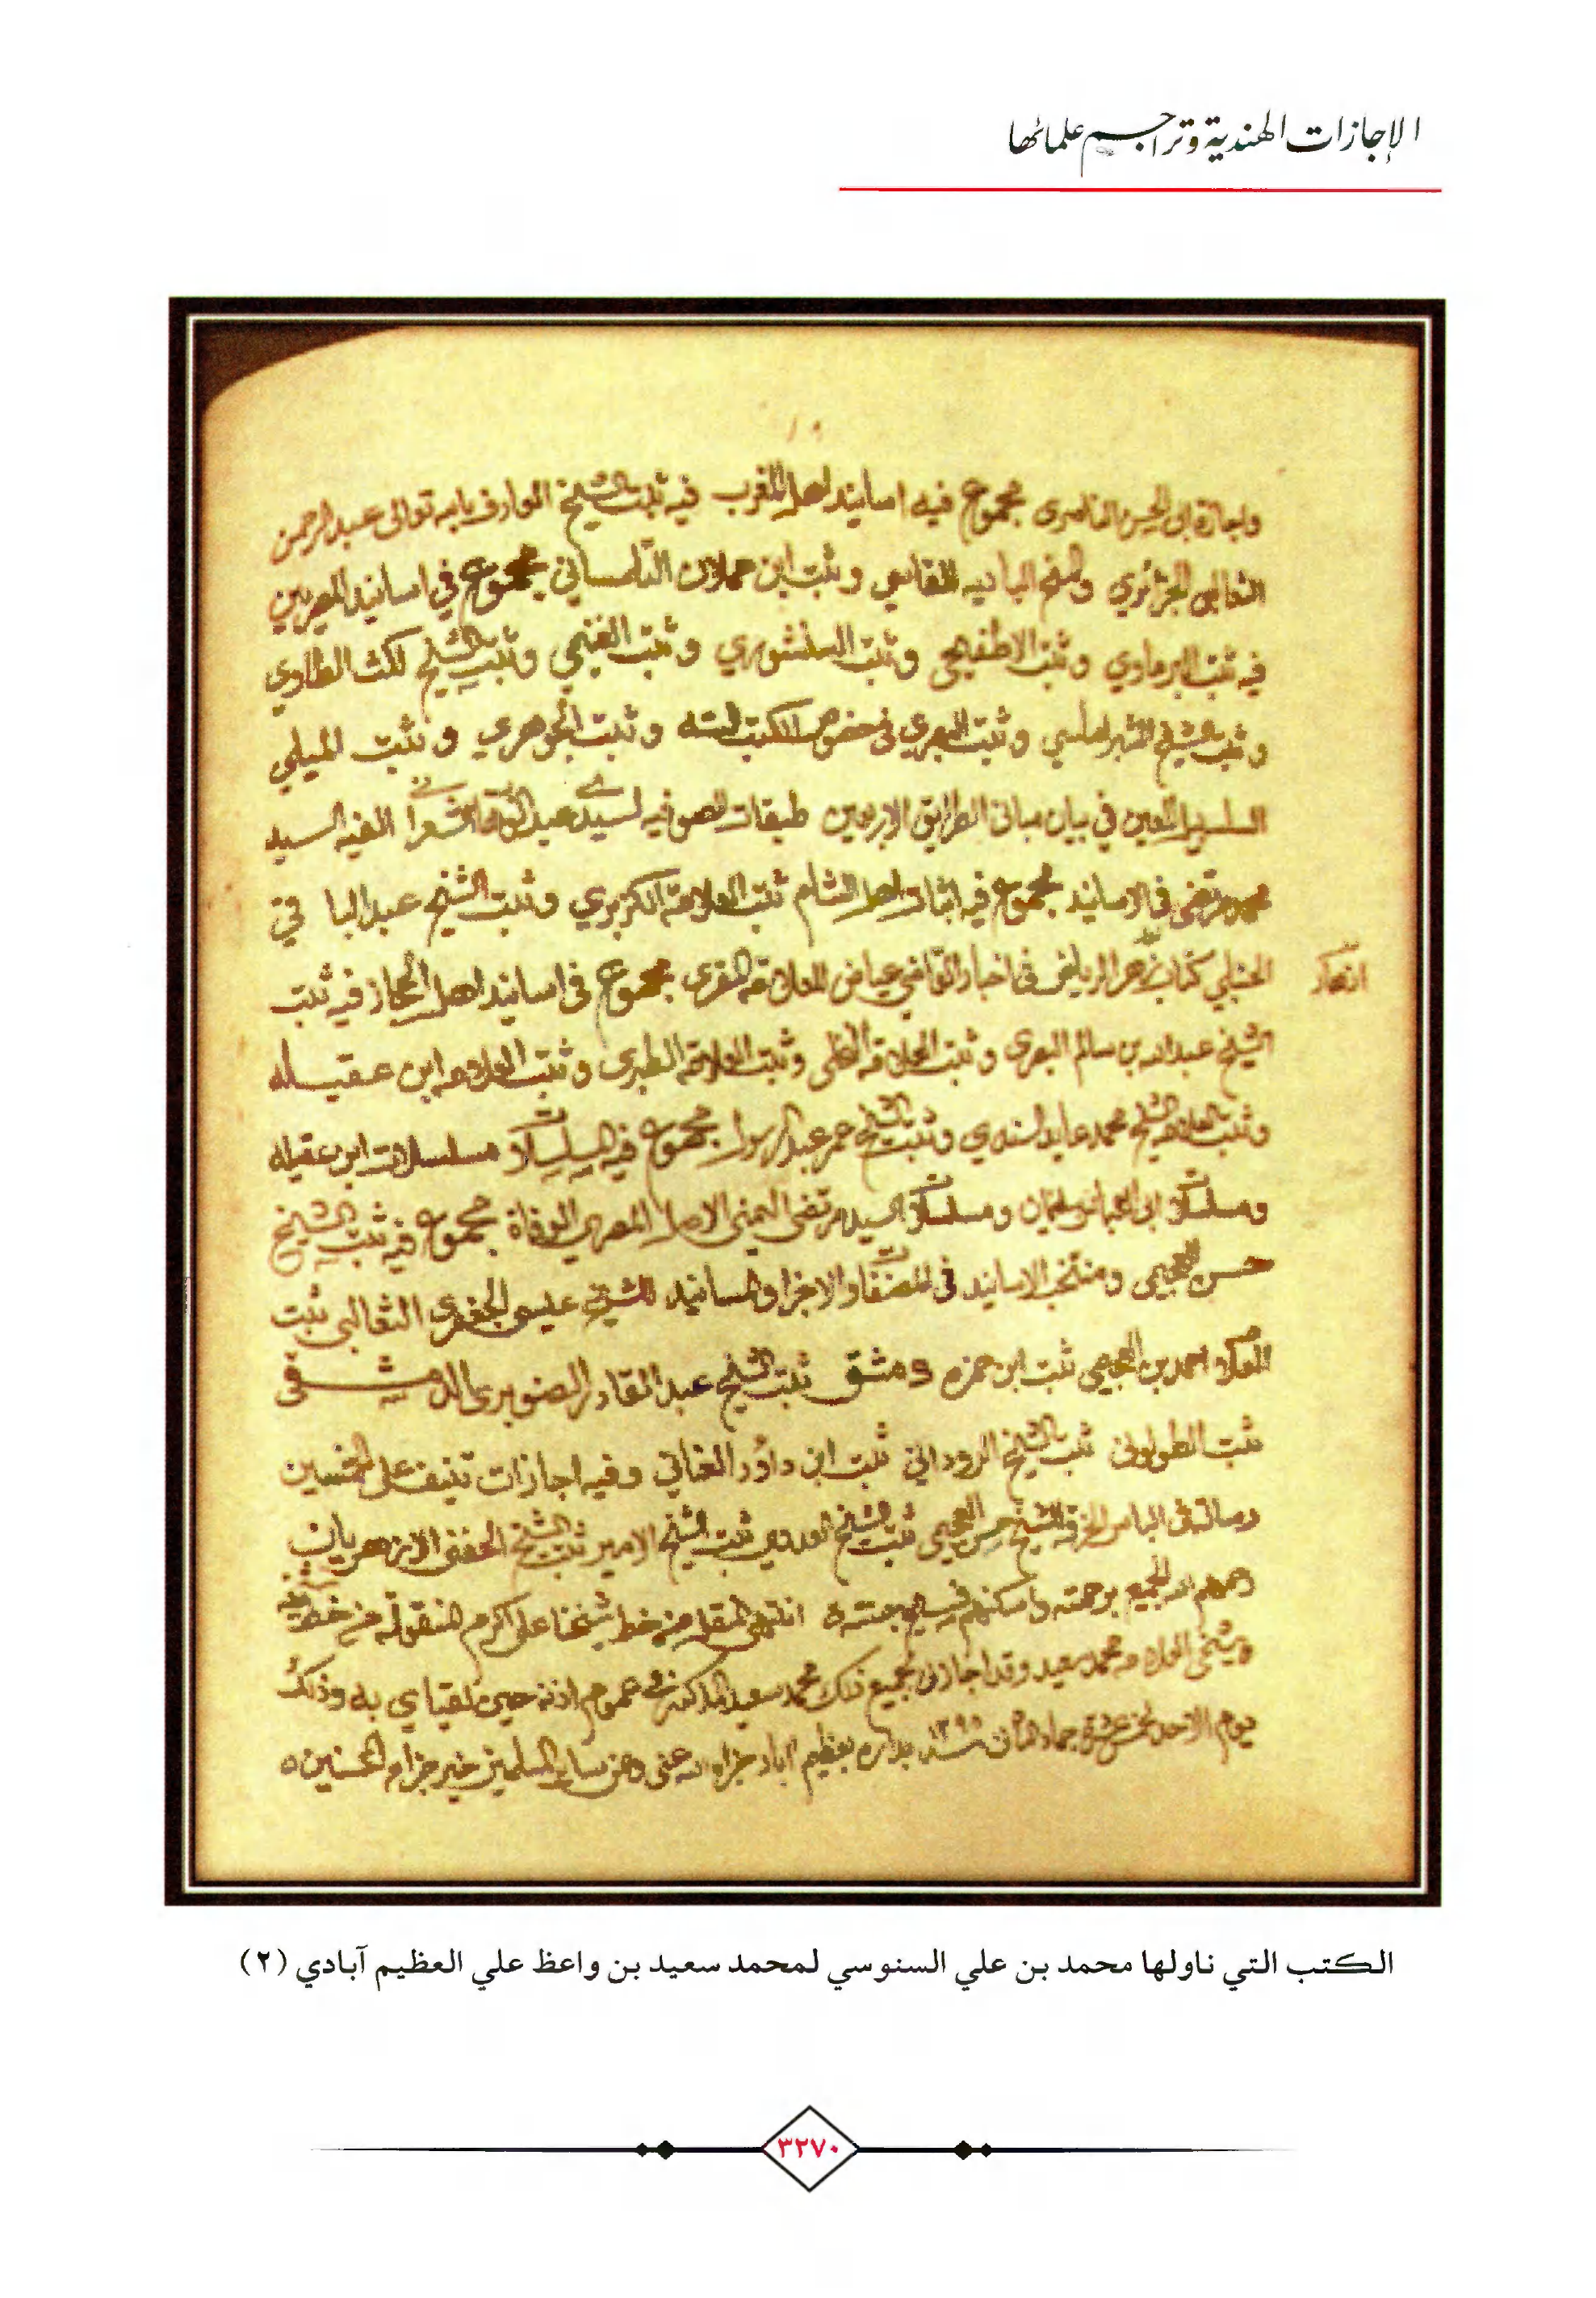 الإجازات الهندية وتراجم علمائها
واجازة ابى الحسن مجموع فيه اسانيد اهل المغرب فيه ثبت الشيخ العارف بالله تعالى عبد الرحمن
الثعالبى الجزائري والمنح الباديه للفاسي وثبت ابن حملان التلمساني مجموع في اسانيد المصريين
فيه ثبت البرماوي وثبت الاطفيحي وثبت وثبت الغنيمي وثبت الشيخ
وثبت الشيخ الشبراملسي وثبت البصري في خصوص الكتب السته وثبت الجوهري وثبت الميلي
السلسبيل المعين في بيان مبانى الطرايق الاربعين طبقات الصوفيه لسيدي عبد الوهاب الشعراني الفيه السيد
محمد مرتضى في الاسانيد مجموع فيه اثبات اهل الشام ثبت العلامة الكزبري وثبت الشيخ عبد البا قي
الحنبلي كتاب ازهار الرياض في اخبار القاضي عياض للعلامة المقرى مجموع في اسانيد اهل الحجاز فيه ثبت
الشيخ عبد الله بن سالم البصري وثبت العلامة النخلي وثبت العلامة الطبري وثبت العلامة ابن عقيله
وثبت العلامة الشيخ محمد عابد السندي وثبت الشيخ عمر عبد الرسول مجموع فيه المسلسلات مسلسلات ابن عقيله
ومسلسلات ابى العباس ومسلسلات السيد مرتضى اليمني الاصل المصري الوفاة مجموع فيه ثبت الشيخ
حسن العجيمي ومنتخب الاسانيد في المصنفات والاجزا والمسانيد للشيخ عيسى الجعفري الثعالبي ثبت
احمد بن العجيمي ثبت ابن حمزه دمشق ثبت الشيخ عبد القادر الصنوبرى الدمشقى
ثبت الطولونى ثبت الشيخ الروداني ثبت ابن داود العناني وفيه اجازات تنيف على الخمسين
رسالة في الباس الخرقة للشيخ حسن العجيمي ثبت الشيخ ثبت الشيخ الامير ثبت الشيخ الحفني الازهريان
رحمهم الله الجميع برحمته واسكنهم فسيح جنته انتهى المنقول من خط شيخنا على اكرم المنقولة من خط شيخه
وشيخي العلامه محمد سعيد وقد اجازني بجميع ذلك محمد سعيد المذكور في عموم اذنه حين لقياي به وذلك
يوم الاحد بداره بعظيم اباد جزاه الله عنى وعن ساير المسلمين خير جزاء المحسنين
الكتب التي ناولها محمد بن علي السنوسي لمحمد سعيد بن واعظ علي العظيم آبادي (٢)
٣٢٧٠